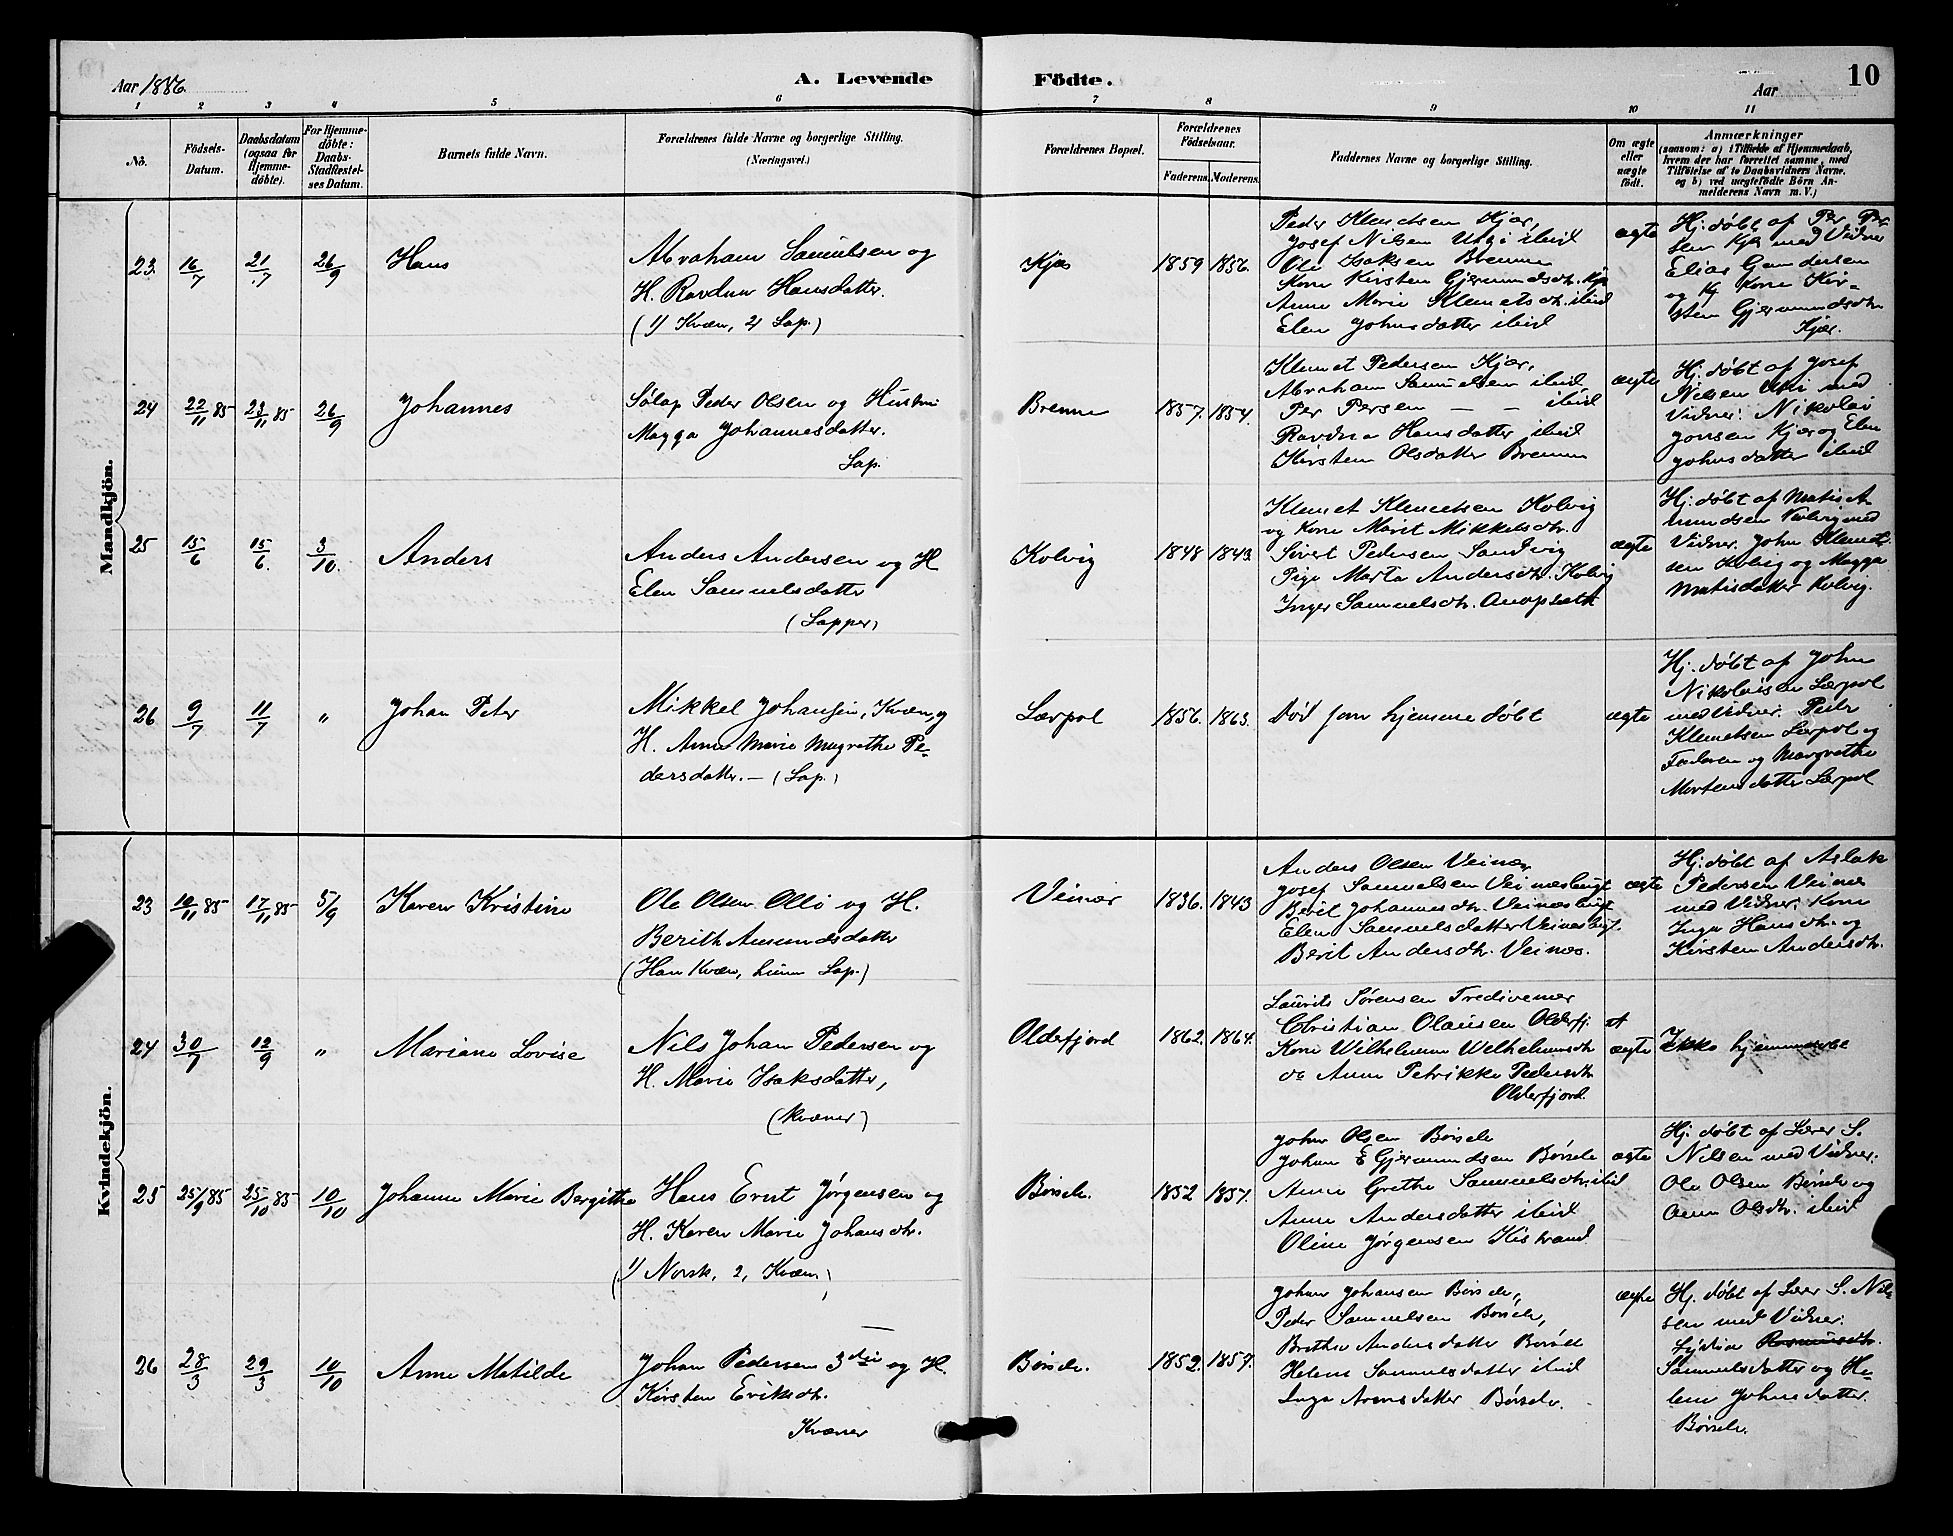 Aar 1886.
A. Levende
Födte.
Aar
10
1 2 3 4 5 6 7 8 9 10 11
No.
Födsels-
Datum.
Daabsdatum
(ogsaa for
Hjemme-
döbte).
For Hjemme-
döbte:
Daabs-
Stadfæstel-
ses Datum.
Barnets fulde Navn.
Forældrenes fulde Navne og borgerlige Stilling.
(Næringsvei.)
Forældrenes Bopæl.
Forældrenes
Födselsaar.
Faderens. Moderens.
Faddernes Navne og borgerlige Stilling.
Om ægte
eller
uægte
födt.
Anmærkninger
(saasom: a) i Tilfælde af Hjemmedaab,
hvem der har forrettet samme, med
Tilföielse af to Daabsvidners Navne.
og b) ved uægtefödte Börn An-
melderens Navn m. V.)
Mandkjön.
23. 16/7 21/7 26/9 Hans
Abraham Samuelsen og
H. Ravdna Hansdatter.
(1) Kvæn, 2) Lap.)
Kjæs 1859 1856.
Peder Klemetsen Kjær,
Josef Nilsen Utsi ibid
Ole Isaksen Brenne
Kone Kirsten Gjermundsdtr. Kjæ
Anne Marie Klemetsdtr. ibid
Elen Johnsdatter ibid
ægte
Hj. døbt af Per Per-
sen Kjæ med Vidner
Elias Gundersen
og Kj Kone Kir-
sten Gjermundsdtr
Kjær.
24 22/11 85 23/11 85 26/9 Johannes
Sølap Peder Olsen og Hustru
Magga Johannesdatter.
Lap.
Brenne 1857. 1854.
Klemet Pedersen Kjær,
Abraham Samuelsen ibid,
Per Persen — — ibid
Ravdna Hansdatter ibid
Kirsten Olsdatter Brenne
ægte
Hj. døbt af Josef
Nilsen Utsi med
Vidner: Nikolai
Jonsen Kjær og Elen
Johnsdatter ibid
25 15/6 15/6. 3/10. Anders
Anders Andersen og H
Elen Samuelsdatter
(Lapper)
Kolvig 1848 1843.
Klemet Klemetsen Kolvig
og Kone Marit Mikkelsdtr.
Sivert Pedersen Sandvig
Pige Marta Andersdtr. Kolvig
Inger Samuelsdtr.
ægte
Hj. døbt af Matis A
mundsen Kolvig med
Vidner. John Klemet-
sen Kolvig og Magga
Matisdatter Kolvig.
26 9/7 11/7 " Johan Peter
Mikkel Johansen, Kvæn, og
H. Anne Marie Magrethe Pe-
dersdatter. — (Lap.)
Lærpol 1856. 1863.
Død som hjemmedøbt
ægte
Hj. døbt af John
Nikolaisen Lærpol
med Vidner. Peder
Klemetsen Lærpol og
Faderen og Margrethe
Mortensdatter Lærpol
Kvindekjön.
23 10/11 85 17/11 85 5/9 Karen Kristine
Ole Olsen Ollo og H.
Berith Amundsdatter
(Han Kvæn, hun Lap.)
Veinæs 1836. 1843
Anders Olsen Veinæs
Josef Samuelsen Veinæsbugt
Berit Johannesdtr. Veinæsbugt
Elen Samuelsdatter Veinæsbugt.
Berit Andersdtr. Veinæs.
ægte
Hj. døbt af Aslak
Pedersen Veinæs
med Vidner. Kone
Inga Hansdtr. og
Kirsten Andersdtr.
24 30/7 12/9 " Mariane Lovise
Nils Johan Pedersen og
H. Marie Isaksdatter,
(Kvæner)
Olderfjord 1862. 1864.
Laurits Sørensen Tredivenær
Christian Olausen Olderfj.
Kone Wilhelmine Welhelmsdtr
do Anne Petrikke Pedersdtr
Olderfjord.
ægte
Ikke hjemmedøbt
25 25/9 85 25/10 85 10/10 Johanne Marie Bergitha
Hans Ernt Jørgensen og
H. Karen Marie Johansdtr.
(1) Norsk, 2, Kvæn)
Børsele. 1852 1857.
Johan Olsen Børsele
Johan E Gjermundsen Børsele
Anne Grethe Samuelsdtr. ibid
Anne Andersdatter ibid
Oline Jørgensen Kistrand
ægte
Hj. døbt af Lærer S.
Nilsen med Vidner.
Ole Olsen Børsele og
Ane Olsdtr. ibid
26 28/3 29/3 10/10 Anne Matilde
Johan Pedersen 3die og H.
Kirsten Eriksdtr.
Kvæner
Børsele. 1852. 1857.
Johan Johansen Børsele,
Peder Samuelsen Børsele,
Brethe Andersdatter Børsele
Helene Samuelsdatter ibid
Inga Aronsdatter Børsele.
ægte
Hj. døbt af Lærer S. Nil-
sen med Vidner.
Lydia Rasmusdtr.
Samuelsdatter og He-
lene Johnsdatter.
Børsele.